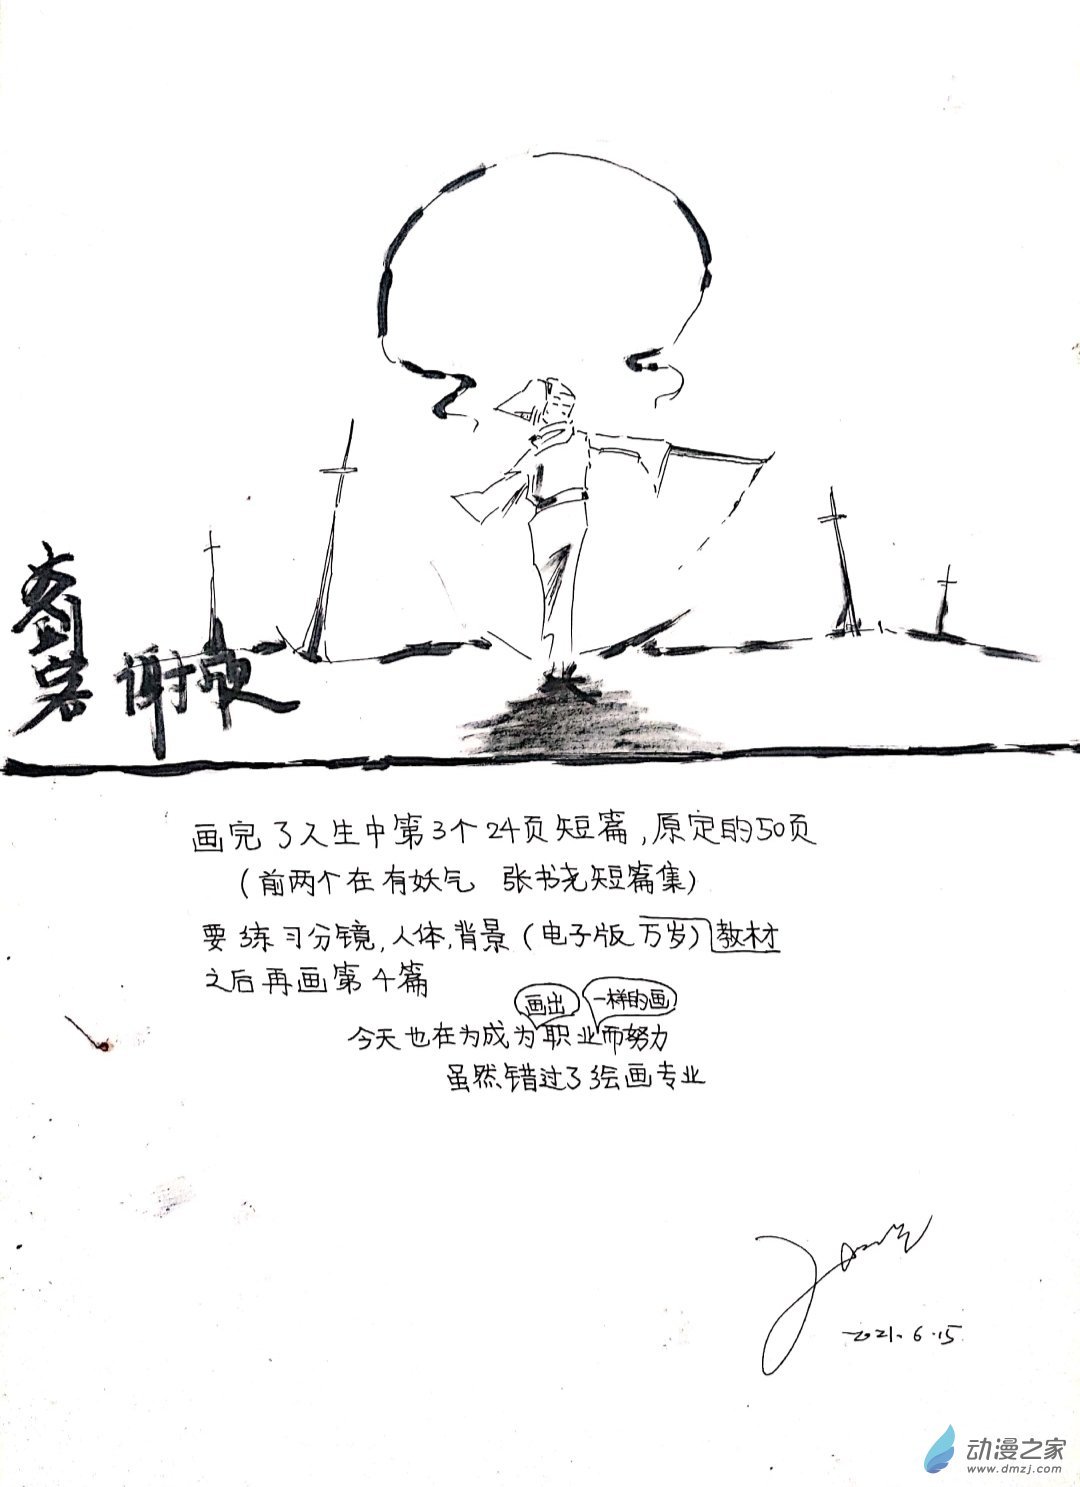 谢敬
画完了人生中第3个24页短篇,原定的50页
(前两个在有妖气 张书尧短篇集)
要练习分镜,人体,背景(电子版万岁)教材
之后再画第4篇
画出 一样的画
今天也在为成为职业而努力
虽然错过了绘画专业
2021.6.15
动漫之家
www.dmzj.com